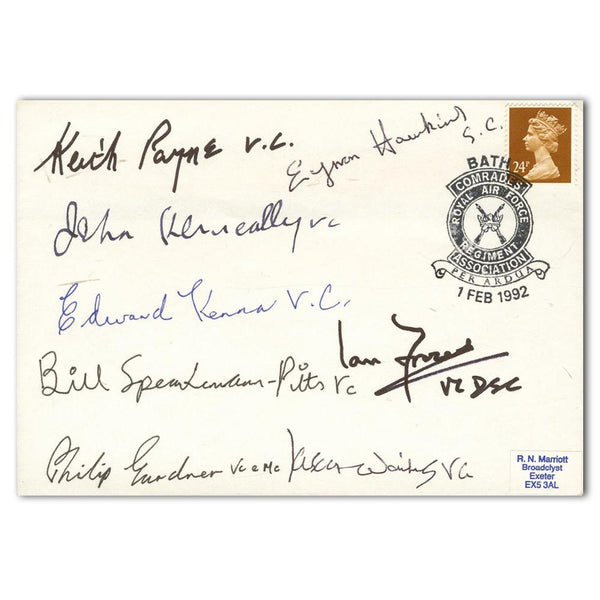 Keith Payne V.C.
Eynon Hawkins
G.C.
24P
BATH
COMRADES'
ROYAL AIR FORCE
REGIMENT
ASSOCIATION
PER ARDUA
1 FEB 1992
John Kenneally VC
Edward Kenna V.C.
Ian Fraser
VC DSC
Bill Speakman-Pitts VC
Philip Gardner VC & MC
VC
R. N. Marriott
Broadclyst
Exeter
EX5 3AL